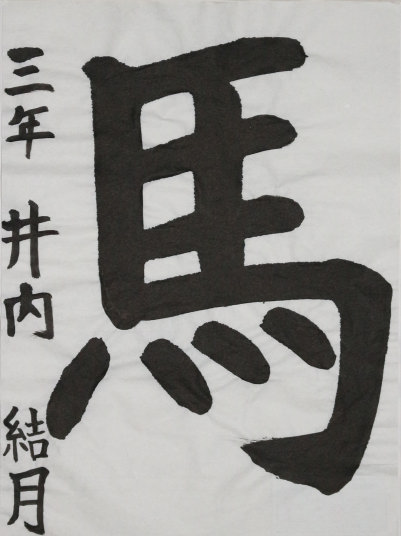 馬
三年 井内 結月